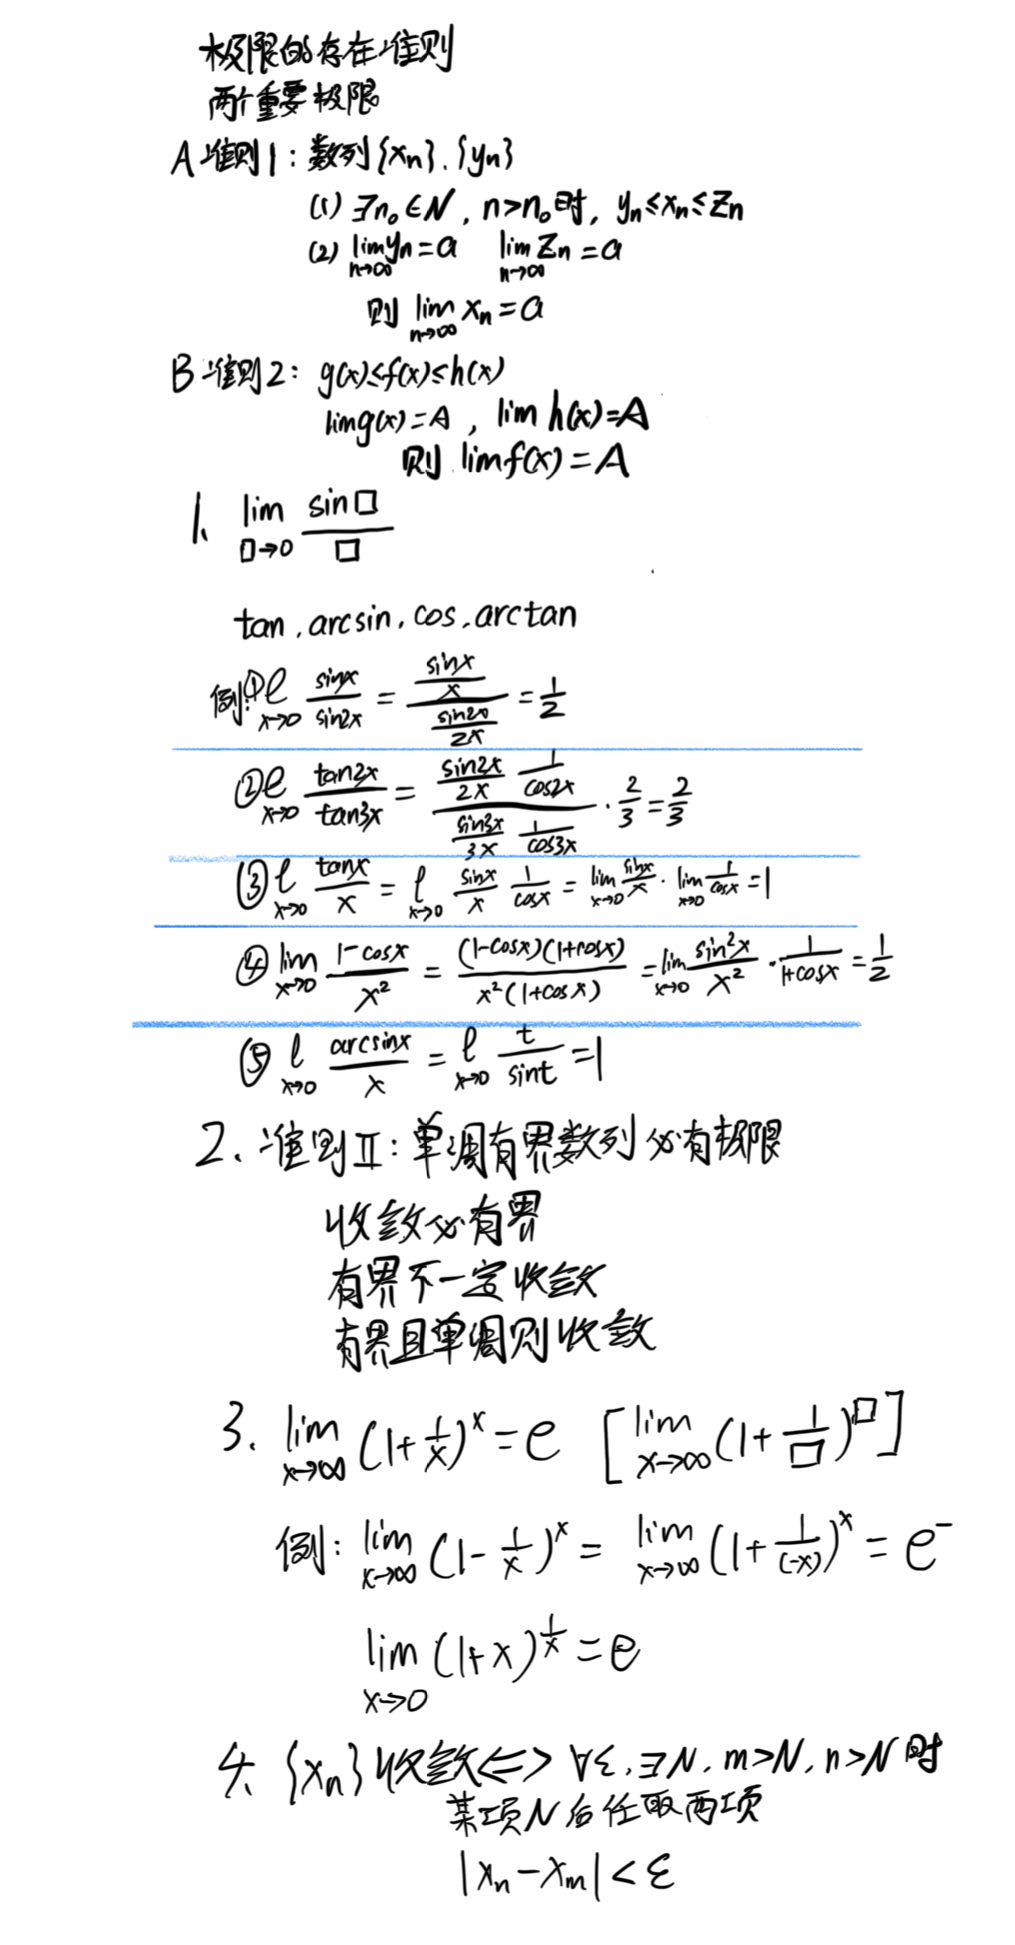 极限的存在准则
两个重要极限
A 准则1：数列{xn}.{yn}
(1) ∃n₀∈N, n>n₀时, yn≤xn≤Zn
(2) lim n→∞ yn=a lim n→∞ Zn=a
则 lim n→∞ xn=a
B 准则2： g(x)≤f(x)≤h(x)
lim g(x)=A , lim h(x)=A
则 lim f(x)=A
1. lim □→0 sin□/□
tan.arcsin.cos.arctan
例:① ℓ x→0 sinx/sin2x = (sinx/x)/(sin2x/2x) = 1/2
② ℓ x→0 tan2x/tan3x = (sin2x/2x 1/cos2x)/(sin3x/3x 1/cos3x) · 2/3 = 2/3
③ ℓ x→0 tanx/x = ℓ x→0 sinx/x 1/cosx = lim x→0 sinx/x · lim x→0 1/cosx = 1
④ lim x→0 (1-cosx)/x² = (1-cosx)(1+cosx)/x²(1+cosx) = lim x→0 sin²x/x² · 1/(1+cosx) = 1/2
⑤ ℓ x→0 arcsinx/x = ℓ x→0 t/sint = 1
2. 准则Ⅱ：单调有界数列必有极限
收敛必有界
有界不一定收敛
有界且单调则收敛
3. lim x→∞ (1+1/x)^x = e [lim x→∞ (1+1/□)^□]
例: lim x→∞ (1-1/x)^x = lim x→∞ (1+1/(-x))^x = e⁻
lim x→0 (1+x)^(1/x) = e
4. {xn}收敛<=> ∀ε,∃N, m>N, n>N时
某项N后任取两项
|xn-xm|<ε